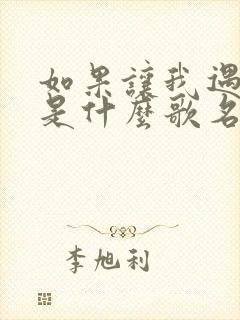 如果讓我遇
是什麼歌名
李旭利